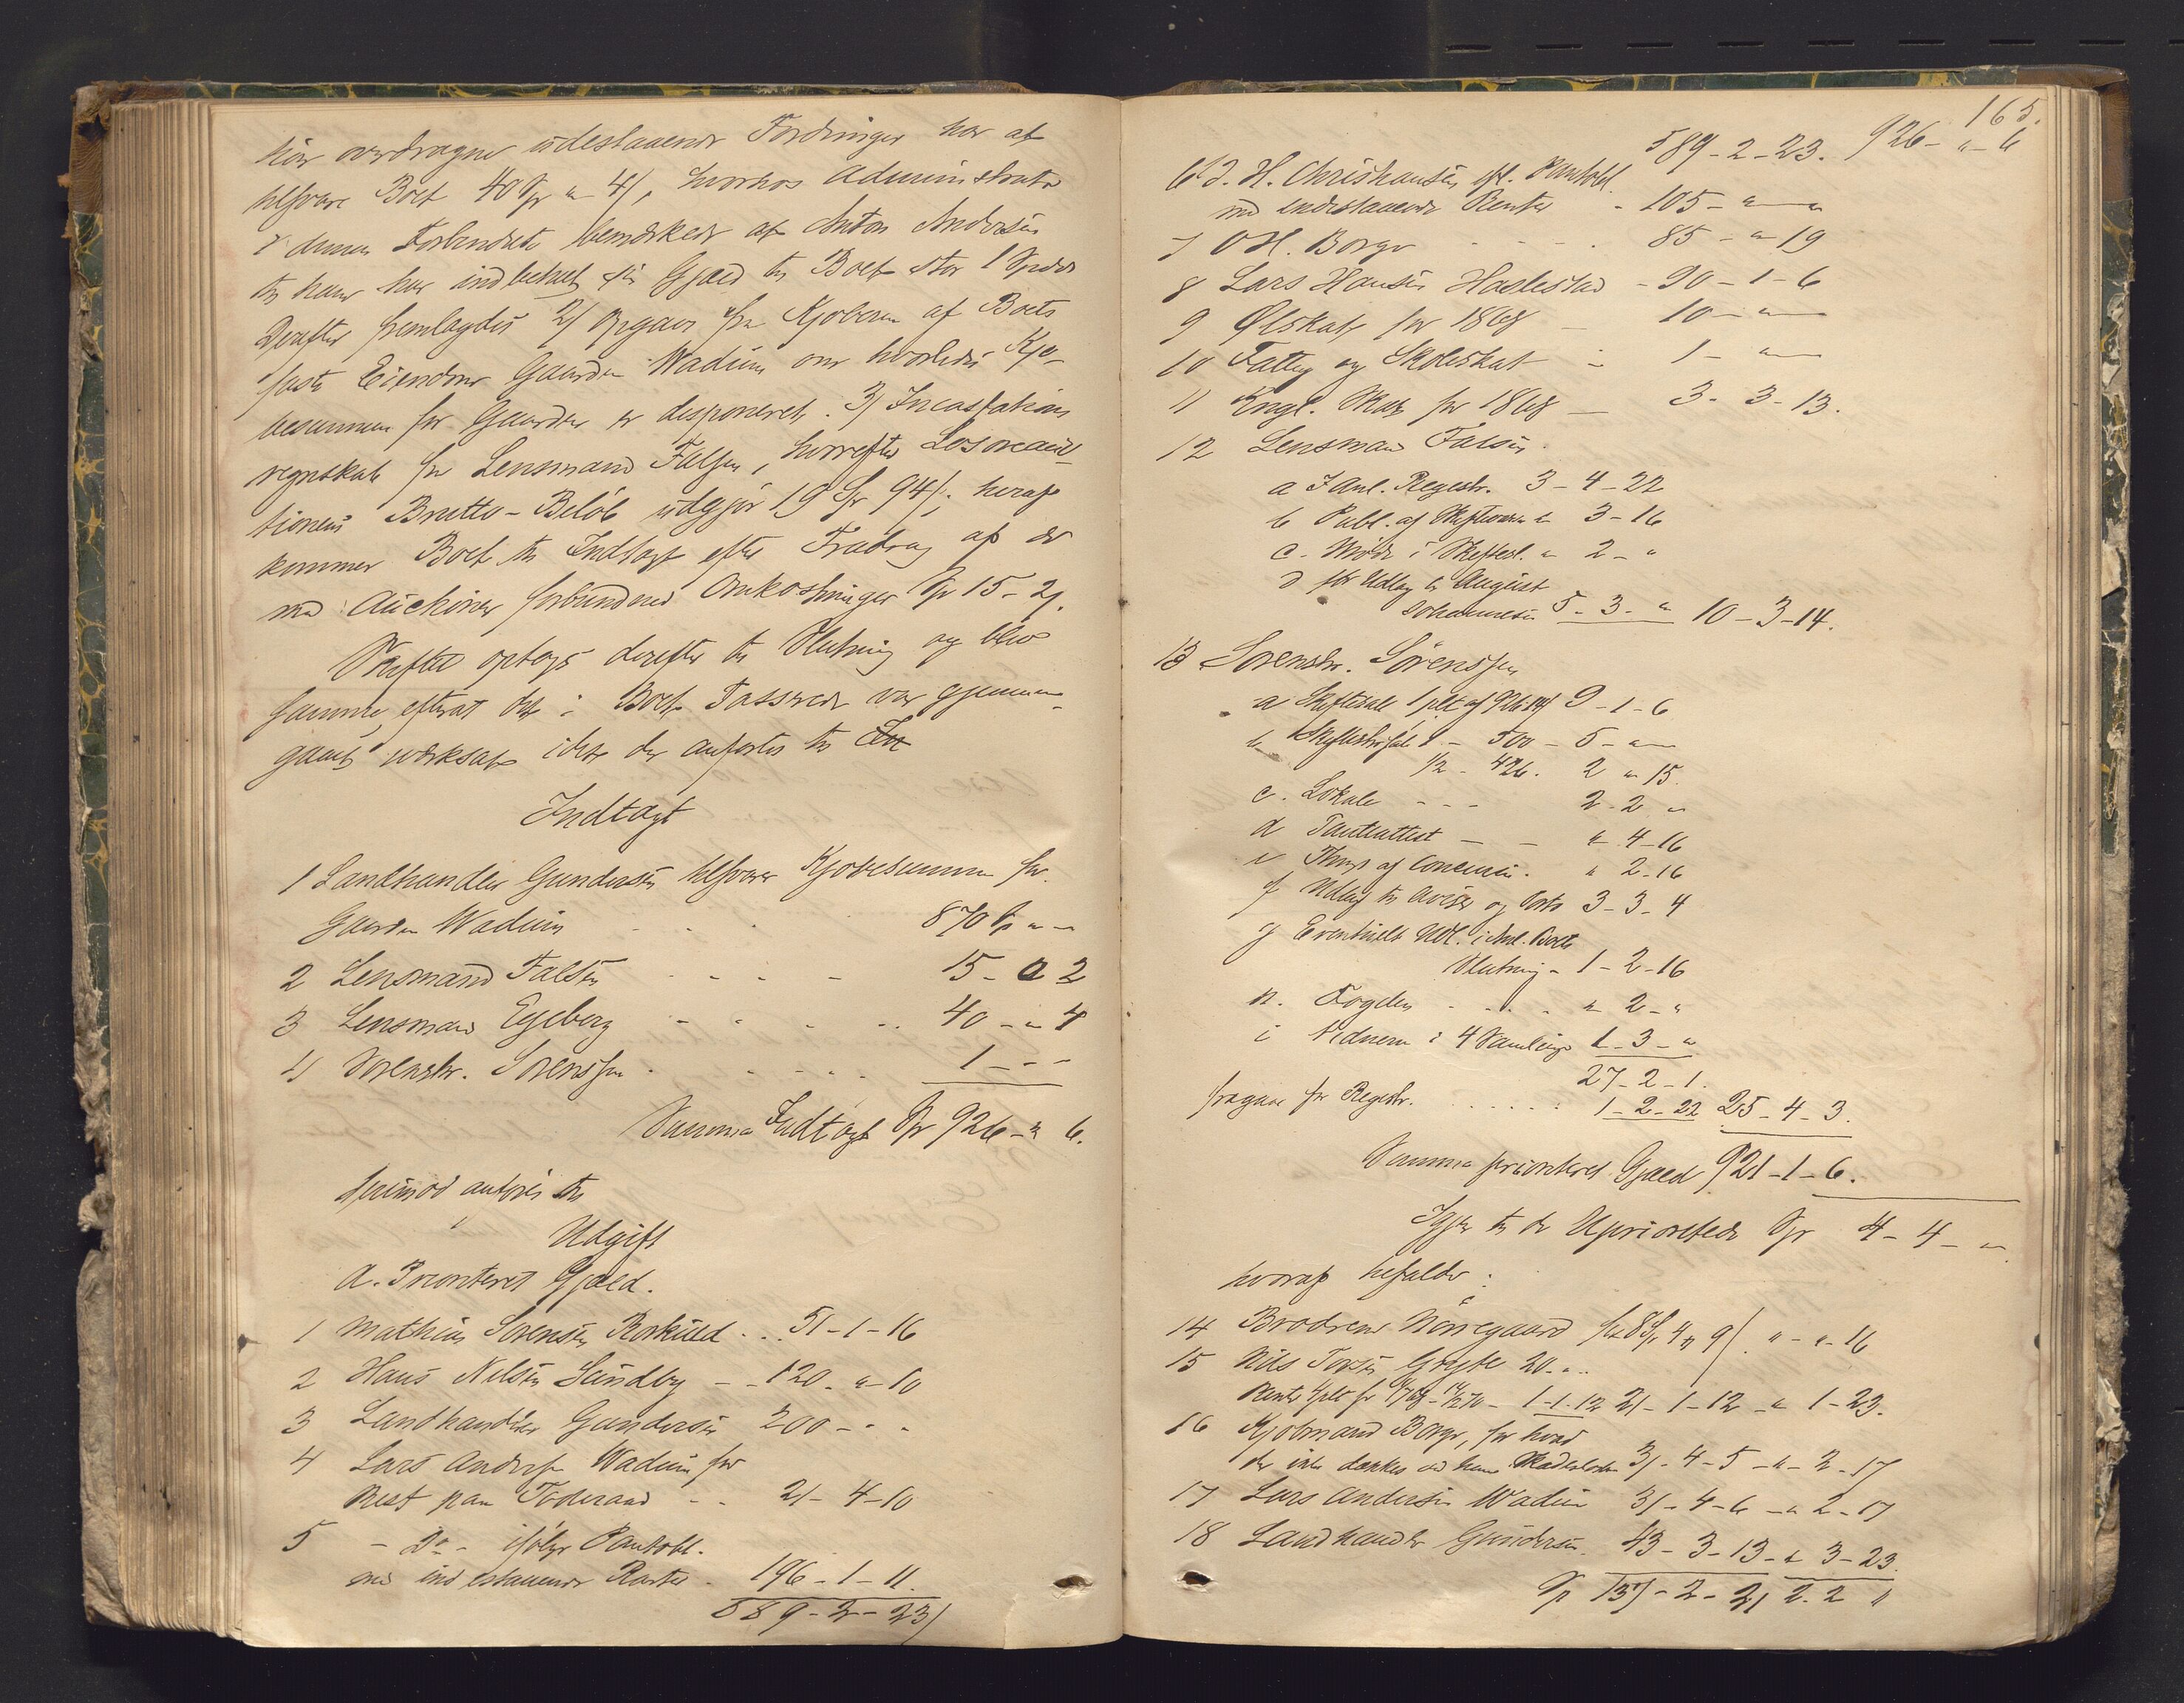 ham overdragne udestaaende Fordringer har at
tilsvare Boet 40 Spr " 4/, hvorhos Administrator
i denne Forbindelse bemærkede at Anton Andersen
til ham har indbetalt sin Gjæld til Boet stor 1 Spdlr
Derefter fremlagdes 2/ Opgave fra Kjøberen af Boets
faste Eiendom Gaarden Wadum om hvorledes Kjø-
besummen for Gaarden er disponeret. 3/ Incassations
regnskab fra Lensmand Falsen, hvorefter Løsøreauk-
tionens Brutto-Beløb udgjør 19 Spr 94/; heraf
kommer Boet til Indtægt efter Fradrag af de
med Auctionen forbundne Omkostninger Spr 15-2/.
Skiftet optoges derefter til Slutning og blev
samme, efterat det i Boet Passerede var gjennem-
gaaet, værksat idet der anførtes til
Indtægt
1 Landhandler Gundersen tilsvarer Kjøbesummen for
Gaarden Wadum 870 Sp " "
2 Lensmand Falsen 15 - " 2
3 Lensmand Egeberg 40 - " 4
4 Sorenskr. Sørenssen 1 - -
Summa Indtægt Spr 926 - " 6.
Herimod anføres til
Udgift
A. Prioriteret Gjæld.
1 Mathias Sørensen Rorkuld 51-1-16
2 Hans Nilsen Sundby 120-"-10
3 Landhandler Gundersen 200 - " -
4 Lars Anders. Wadum for
Rest paa Føderaad 21-4-10
5 - Do - ifølge Pantobl.
med indestaaende Renter 196-1-11.
589-2-23/
165.
589-2-23. 926-"-6
6 J. H. Christiansen ifl. Pantobl.
med indestaaende Renter - 105-"-"
7 O H. Borge 85-"-19
8 Lars Hansen Haslestad - 90-1-6
9 Ølskat for 1868 10-"
10 Fattig og Skoleskat 1-"
11 Kngl. Skat for 1868 3-3-13.
12 Lensmand Falsen.
a I Anl. Registr. 3-4-22
b Publ. af Skiftesaml. 3-16
c. Møde i Skiftesl. " 2-"
d for Udlæg til August
Johannesen 5-3-" 10-3-14.
13 Sorenskr. Sørenssen
a Skifteafg. 1 pCt af 926 Spd 9-1-6
b 1 - 500 - 5-"
1/2 - 426. 2 " 15.
c. Lokale - - - 2-2 "
d Panteattest - - " 4-16
e Thingl. af Concursen. " 2-16
f Udlæg til Aviser og Porto 3-3-4
g Eventuelt Udl. i Anl. Boets
Slutning - 1-2-16
h. Fogden " 2-"
i Vidnerne i 4 Samlinger 1-3-"
27-2-1.
fragaar for Registr. 1-2-22 25-4-3.
Summa prioriteret Gjæld 921-1-6.
Igjen til de Uprioriterede Spr 4-4-"
hvoraf tilfalder:
14 Brødrene Nørregaard for 8 Spr 4 " 9/. "-"-16
15 Nils Torsen 20."..
Rente 4 pCt fr - 1-1-12 21-1-12-" 1-23.
16 Kjøbmand Borge, for hvad
der ikke dækkes ved hans 31-4-5-"-2-17
17 Lars Andersen Wadum 31-4-6-" 2-17
18 Landhandler Gundersen 43-3-13-" 3-23.
Sp 137-2-21 2.2 "